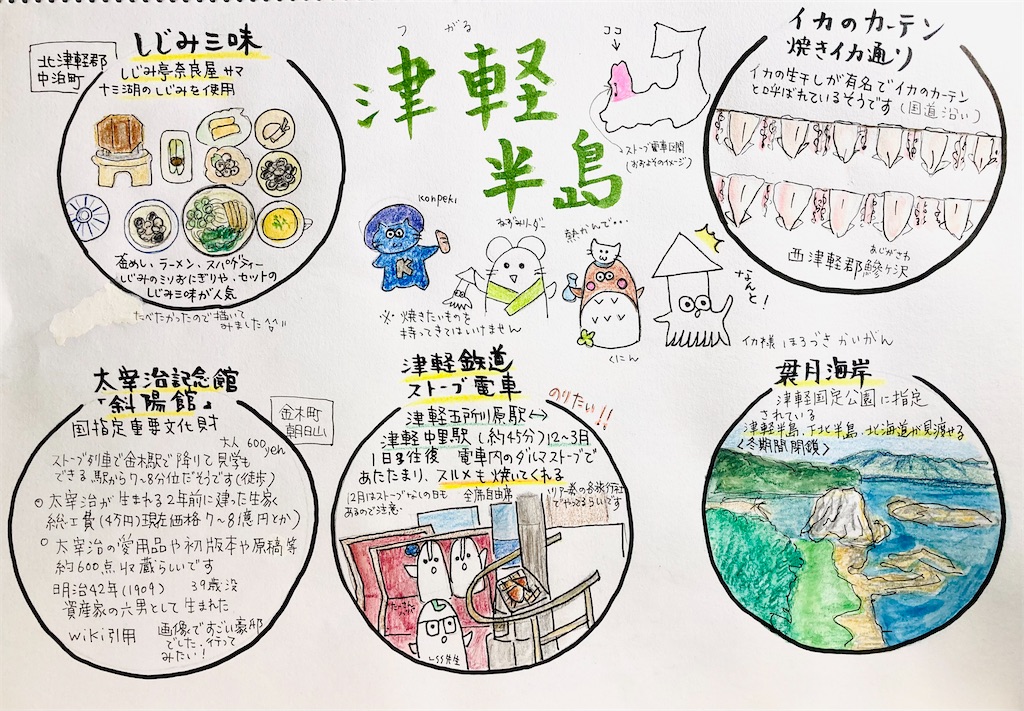 つがる
津軽
半島
ココ
ストーブ電車区間
(おおよそのイメージ)
北津軽郡
中泊町
しじみ三昧
しじみ亭奈良屋サマ
十三湖のしじみを使用
釜めし、ラーメン、スパゲティー
しじみのミソおにぎりや、セットの
しじみ三昧が人気
たべたかったので描いて
みました
イカのカーテン
焼きイカ通り
イカの生干しが有名でイカのカーテン
と呼ばれているそうです(国道沿い)
あじがさわ
西津軽郡鰺ヶ沢
konpeki
K
ねずみリーダー
熱かんで・・・
なんと!
※焼きたいものを
持ってきてはいけません
くにん
イカ様
太宰治記念館
「斜陽館」
国指定重要文化財
金木町
朝日山
大人600yen
ストーブ列車で金木駅で降りて見学も
できる。駅から7〜8分位だそうです(徒歩)
○太宰治が生まれる2年前に建った生家
総工費(4万円)現在価格7〜8億円とか)
○太宰治の愛用品や初版本や原稿等
約600点収蔵らしいです
明治42年(1909) 39歳没
資産家の六男として生まれた
wiki引用
画像ですごい豪邸
でした。行って
みたい!
津軽鉄道
ストーブ電車
のりたい!!
津軽五所川原駅↔
津軽中里駅(約45分)12〜3月
1日3往復 電車内のダルマストーブで
あたたまり、スルメも焼いてくれる
12月はストーブなしの日も
あるので注意・
全席自由席
ツアー等の各旅行社
でやってるらいです
LSS先生
ほろづきかいがん
袰月海岸
津軽国定公園に指定
されている
津軽半島、下北半島、北海道が見渡せる
<冬期間閉鎖>